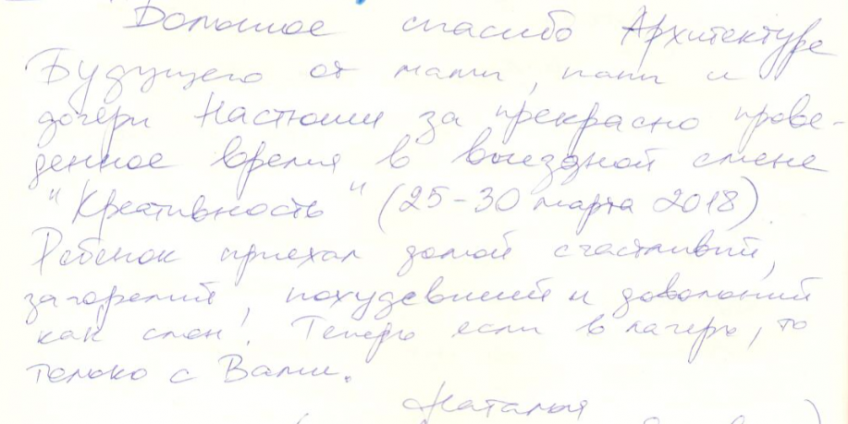 Большое спасибо Архитектуре
Будущего от мамы, папы и
дочери Настюши за прекрасно прове-
денное время в выездной смене
"Креативность" (25-30 марта 2018)
Ребенок приехал домой счастливый,
загорелый, похудевший и довольный
как слон! Теперь если в лагерь, то
только с Вами.
Наталья